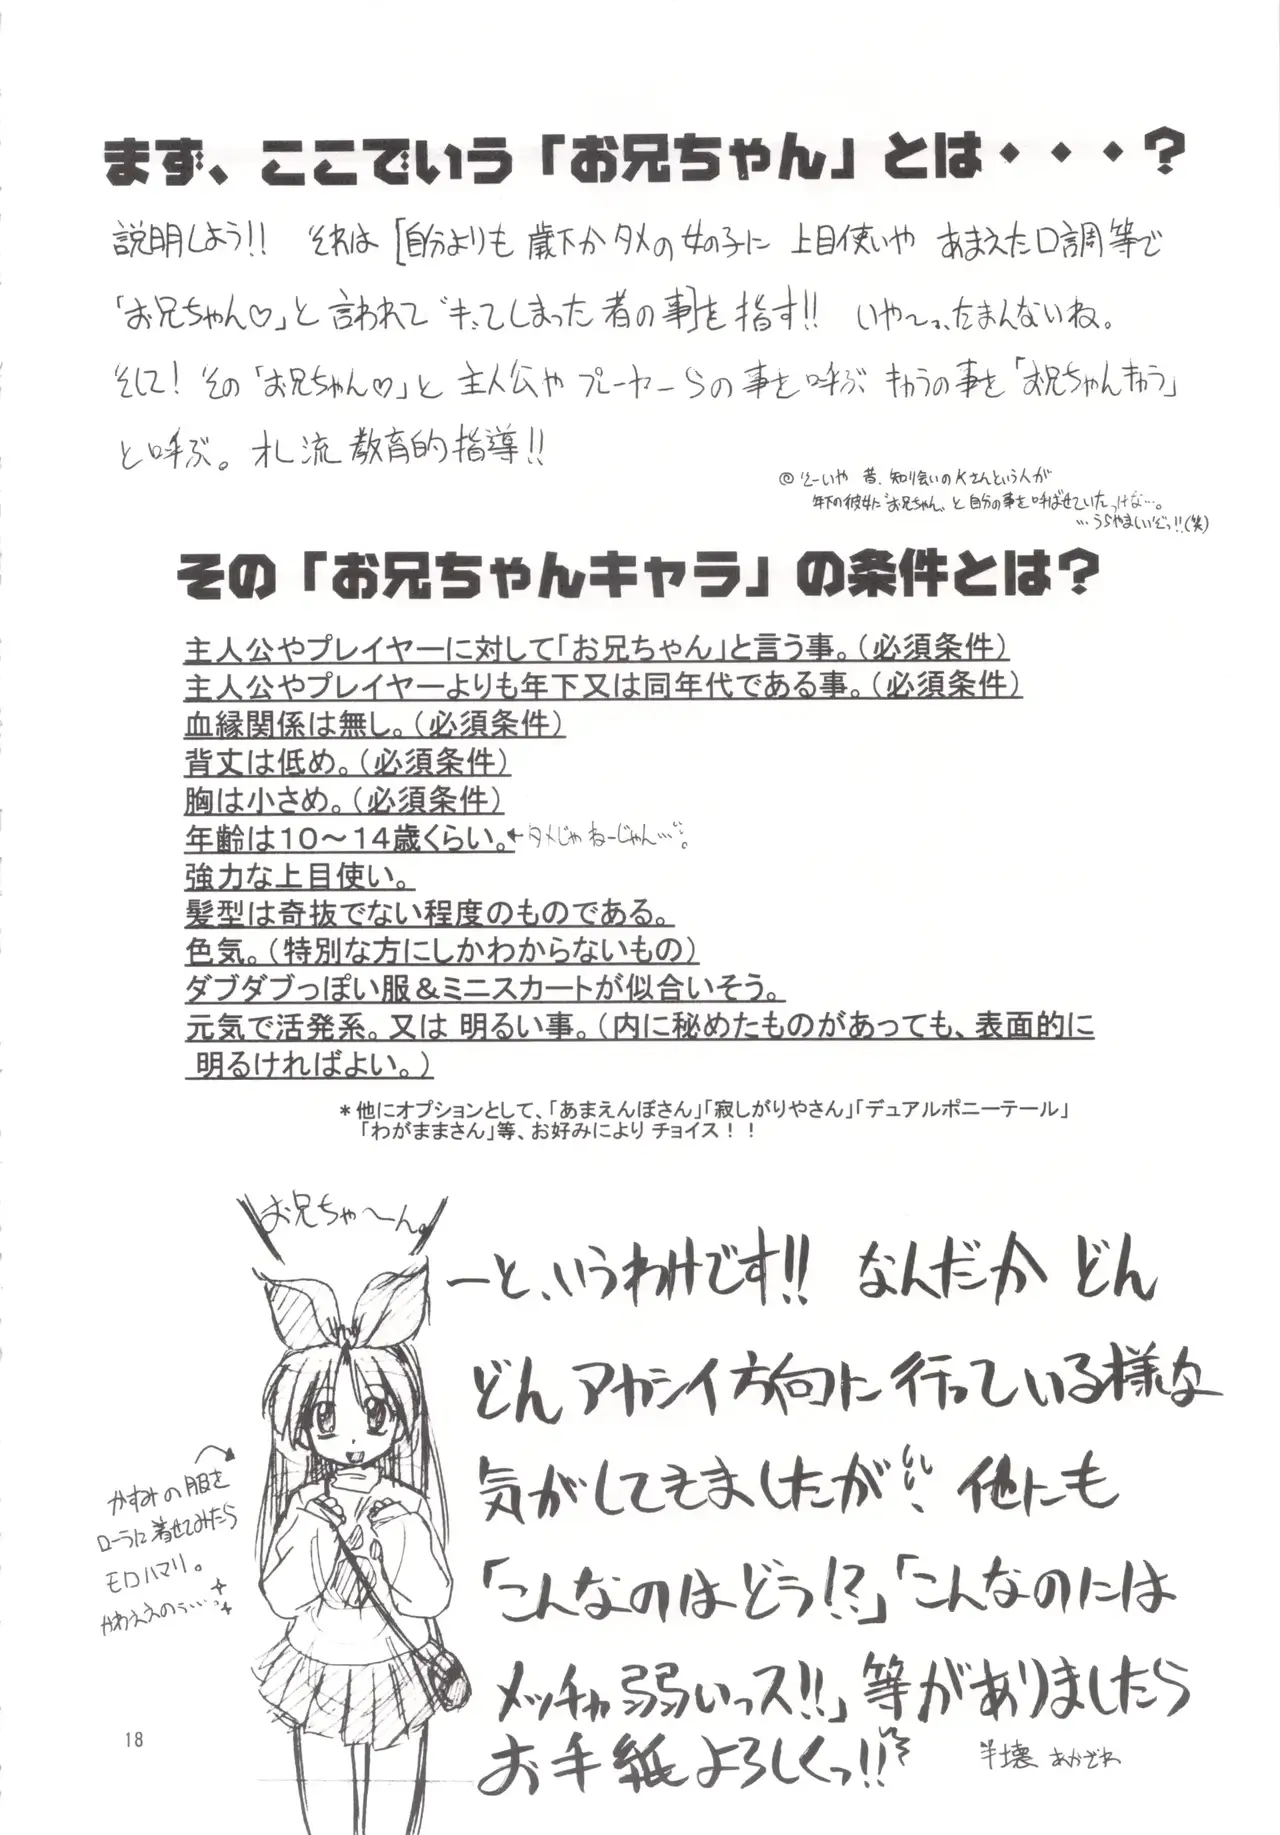 まず、ここでいう「お兄ちゃん」とは・・・?
説明しよう!! それは[自分よりも歳下かタメの女の子に上目使いや あまえた口調等で
「お兄ちゃん♡」と言われて"キ"てしまった者の事]を指す!! いや〜っ、たまんないね。
そして! その「お兄ちゃん♡」と主人公やプレーヤーらの事を呼ぶ キャラの事を「お兄ちゃんキャラ」
と呼ぶ。オレ流 教育的指導!!
◎そーいや 昔、知り合いのKさんという人が
年下の彼女に"お兄ちゃん"と自分の事を呼ばせていたっけな…。
…うらやましいぞっ!!(笑)
その「お兄ちゃんキャラ」の条件とは?
主人公やプレイヤーに対して「お兄ちゃん」と言う事。(必須条件)
主人公やプレイヤーよりも年下又は同年代である事。(必須条件)
血縁関係は無し。(必須条件)
背丈は低め。(必須条件)
胸は小さめ。(必須条件)
年齢は10〜14歳くらい。←タメじゃねーじゃん…。
強力な上目使い。
髪型は奇抜でない程度のものである。
色気。(特別な方にしかわからないもの)
ダブダブっぽい服&ミニスカートが似合いそう。
元気で活発系。又は 明るい事。(内に秘めたものがあっても、表面的に
明るければよい。)
*他にオプションとして、「あまえんぼさん」「寂しがりやさん」「デュアルポニーテール」
「わがままさん」等、お好みにより チョイス!!
お兄ちゃ〜ん。
ーと、いうわけです!! なんだか どん
どん アカシイ方向に行っている様な
気がしてきましたが 他にも
「こんなのはどう!?」「こんなのには
メッチャ弱いっス!!」等がありましたら
お手紙よろしくっ!!
半壊 あかざわ
かすみの服を
ローラに着せてみたら
モロハマリ。
かわええのぅ…
18